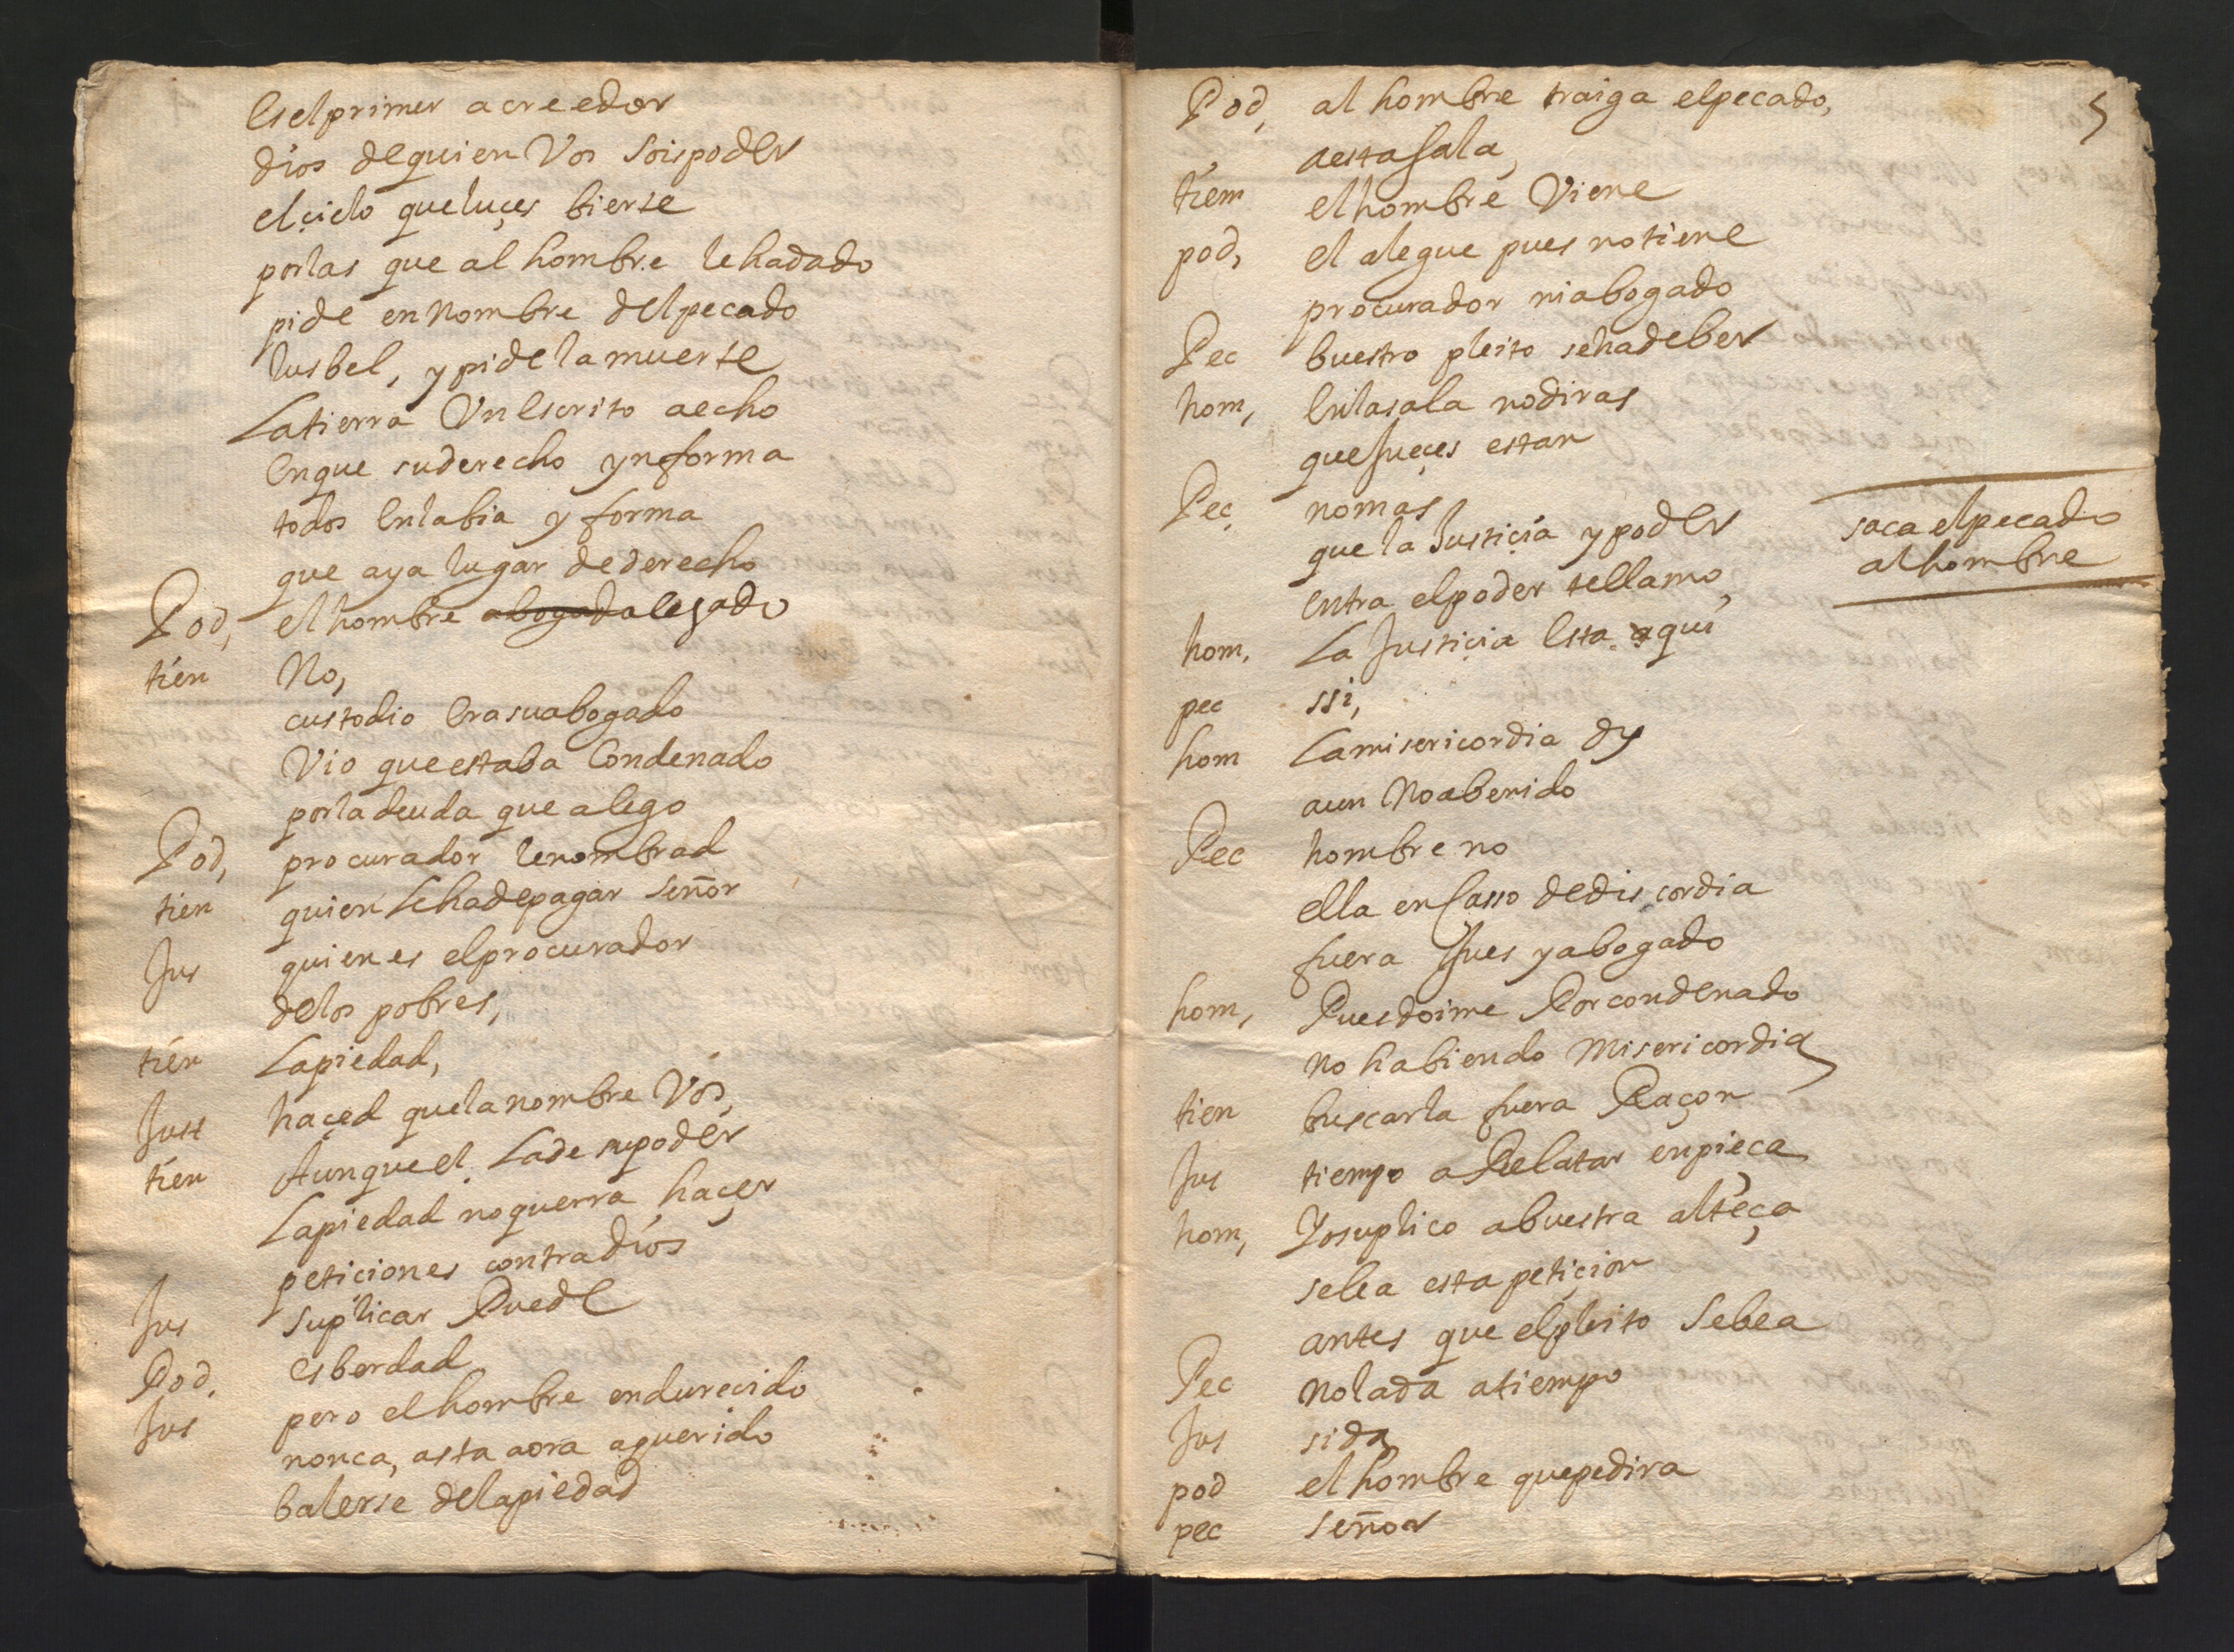 Es el primer acreedor
dios de quien Vos sois poder
el çielo que luçes bierte
por las que al hombre le ha dado
pide en nombre del pecado
lusbel, y pide la muerte
La tierra Un Escrito a echo
En que su derecho ynforma
todos En la bia y forma
que aya lugar de derecho
Pod, el hombre abogad alegado
tien No,
custodio Era su abogado
Vio que estaba Condenado
por la deuda que alego
Pod, procurador le nombrad
tien quien se ha de pagar señor
Jus quien es el procurador
de los pobres,
tien La piedad,
Just haçed que la nombre Vos,
tien Aunque el La de su poder
La piedad no querra haçer
petiçiones contra dios
Jus suplicar Puede
Pod, es berdad
Jus pero el hombre endurecido
nonca, asta aora a querido
balerse de la piedad
5
Pod, al hombre traiga el pecado,
a esta sala,
tiem el hombre Viene
pod, el alegue pues no tiene
procurador ni abogado
Pec buestro pleito se ha de ber
hom, En la sala no diras
que Jueçes estan
Pec no mas
que la Justiçia y poder
Entra el poder te llamo,
saca el pecado
al hombre
hom, La Justiçia Esta aqui
pec ssi,
hom La misericordia dy
aun No a benido
Pec hombre no
ella en Casso de discordia
fuera Jues y abogado
hom, Pues doime Por condenado
no habiendo Misericordia
tien buscarla fuera Raçon
Jus tiempo a Relatar enpieça
hom, Yo suplico a buestra alteça
se lea esta petiçion
antes que el pleito Se bea
Pec No la da a tiempo
Jus si da
pod el hombre que pedira
pec Señor